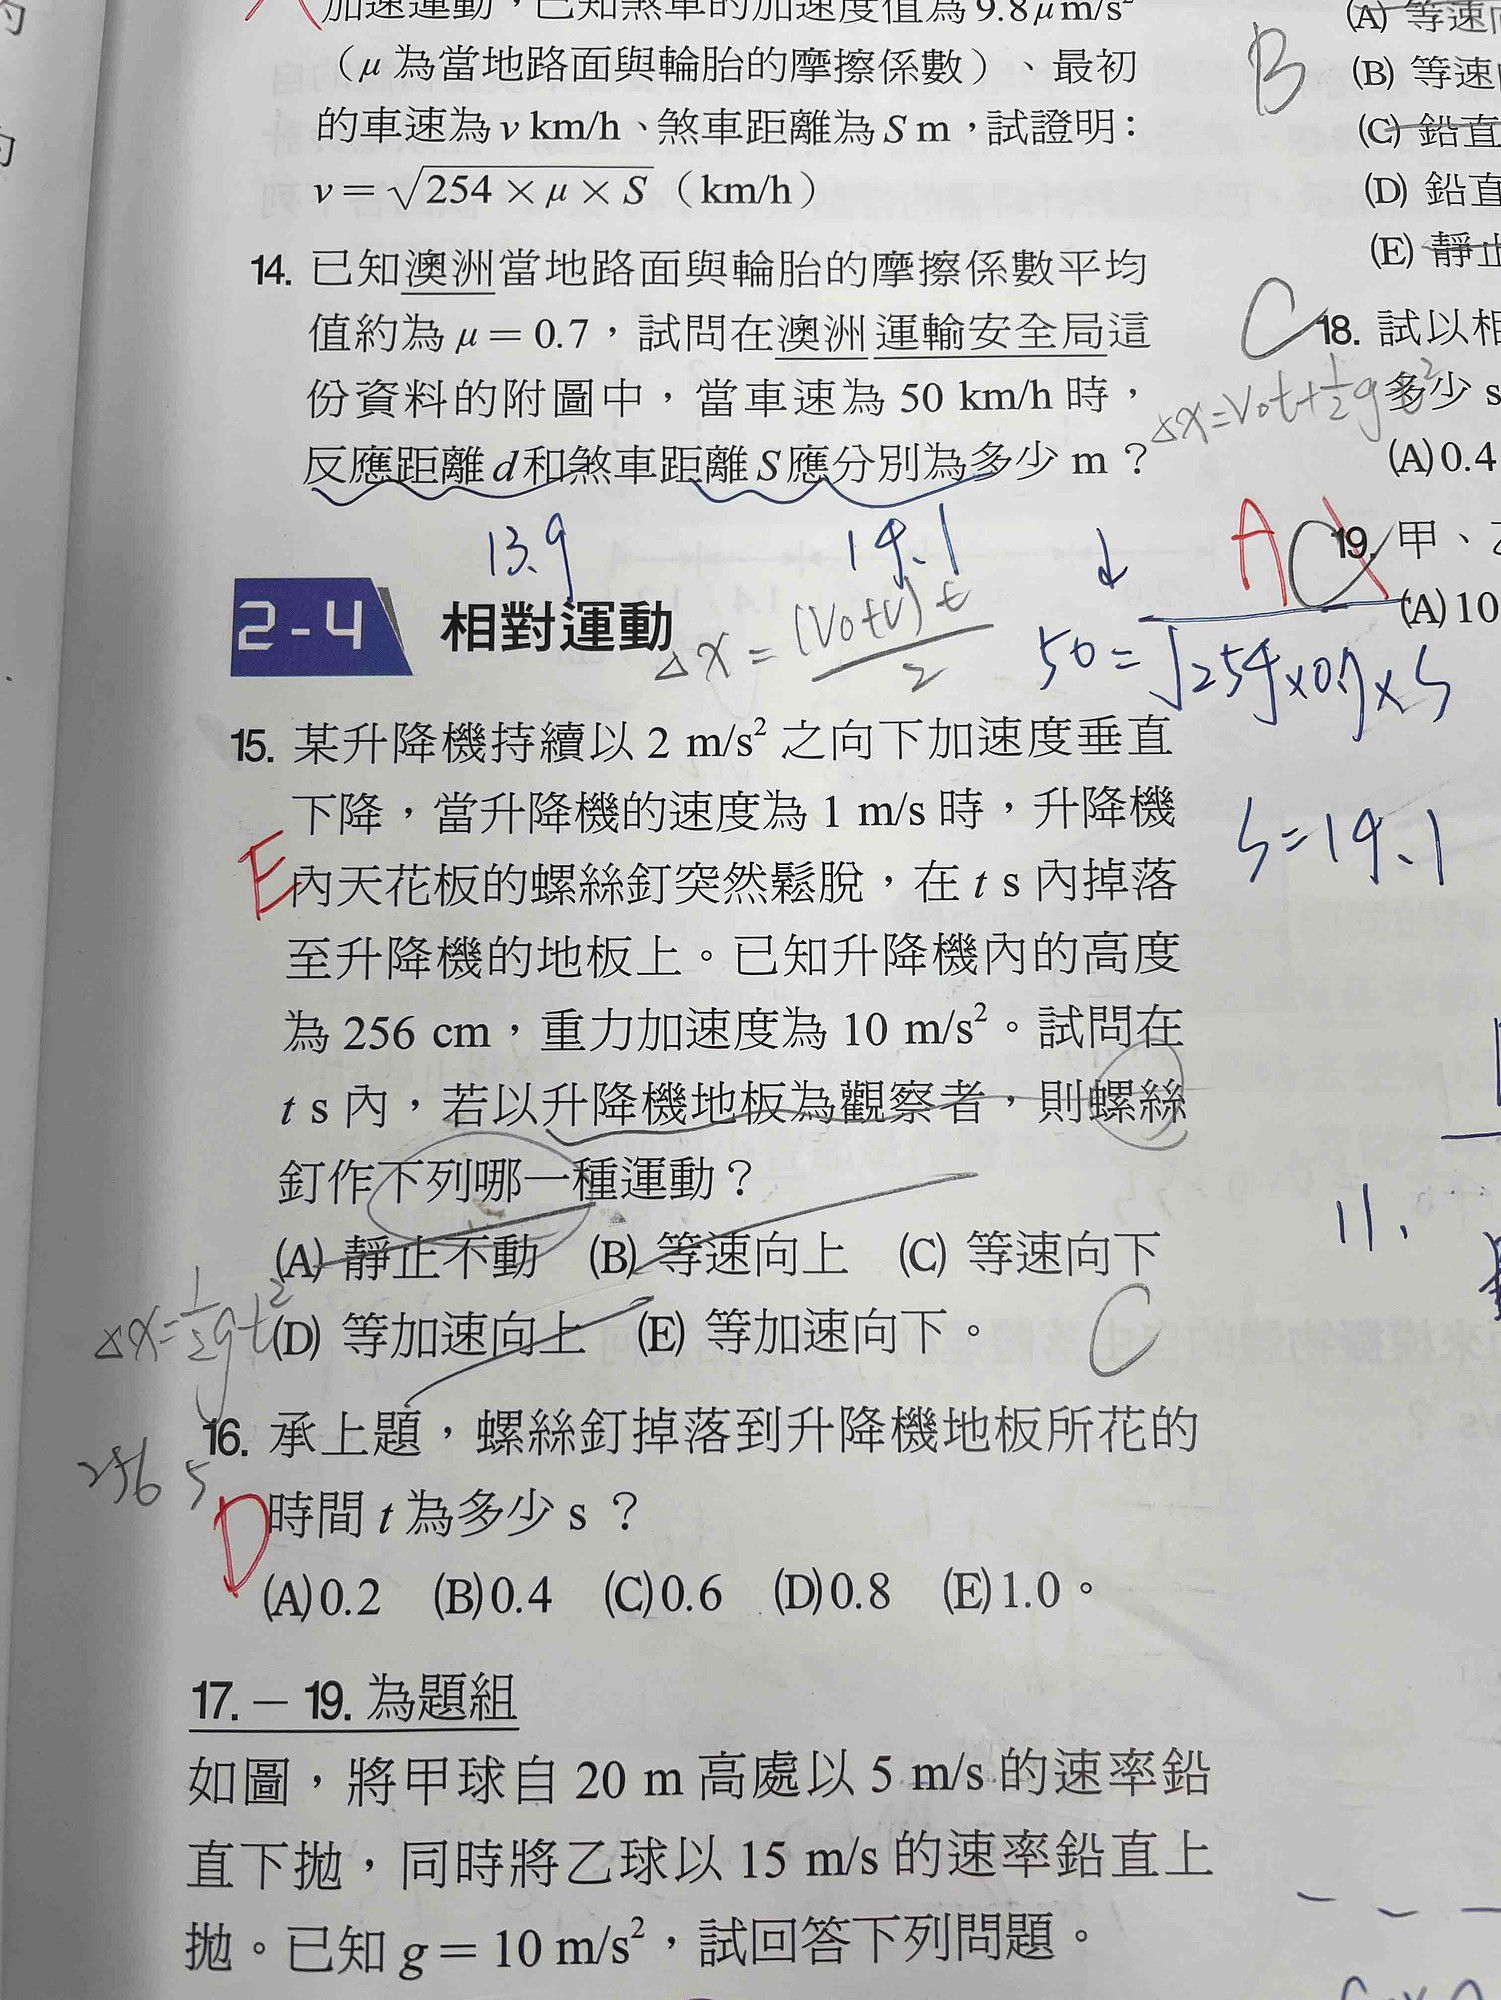 加速運動，已知煞車的加速度值為9.8μm/s²
（μ為當地路面與輪胎的摩擦係數）、最初
的車速為 v km/h、煞車距離為 S m，試證明：
v = √254 × μ × S （km/h）
14. 已知澳洲當地路面與輪胎的摩擦係數平均
值約為 μ = 0.7，試問在澳洲運輸安全局這
份資料的附圖中，當車速為 50 km/h 時，
反應距離 d 和煞車距離 S 應分別為多少 m？
13.9 19.1
2-4 相對運動
Δx = (V₀+V)t / 2
50 = √254×0.7×S
S=19.1
15. 某升降機持續以 2 m/s² 之向下加速度垂直
下降，當升降機的速度為 1 m/s 時，升降機
E
內天花板的螺絲釘突然鬆脫，在 t s 內掉落
至升降機的地板上。已知升降機內的高度
為 256 cm，重力加速度為 10 m/s²。試問在
t s 內，若以升降機地板為觀察者，則螺絲
釘作下列哪一種運動？
(A) 靜止不動 (B) 等速向上 (C) 等速向下
(D) 等加速向上 (E) 等加速向下。
C
Δx=½gt²
16. 承上題，螺絲釘掉落到升降機地板所花的
256 5
D
時間 t 為多少 s ？
(A)0.2 (B)0.4 (C)0.6 (D)0.8 (E)1.0。
17. － 19. 為題組
如圖，將甲球自 20 m 高處以 5 m/s 的速率鉛
直下拋，同時將乙球以 15 m/s 的速率鉛直上
拋。已知 g = 10 m/s²，試回答下列問題。
(A) 等速
B
(B) 等速
(C) 鉛直
(D) 鉛直
(E) 靜止
C
18. 試以相
多少 s
Δx=V₀t+½gt²
(A)0.4
A C
19. 甲、乙
(A)10
11.